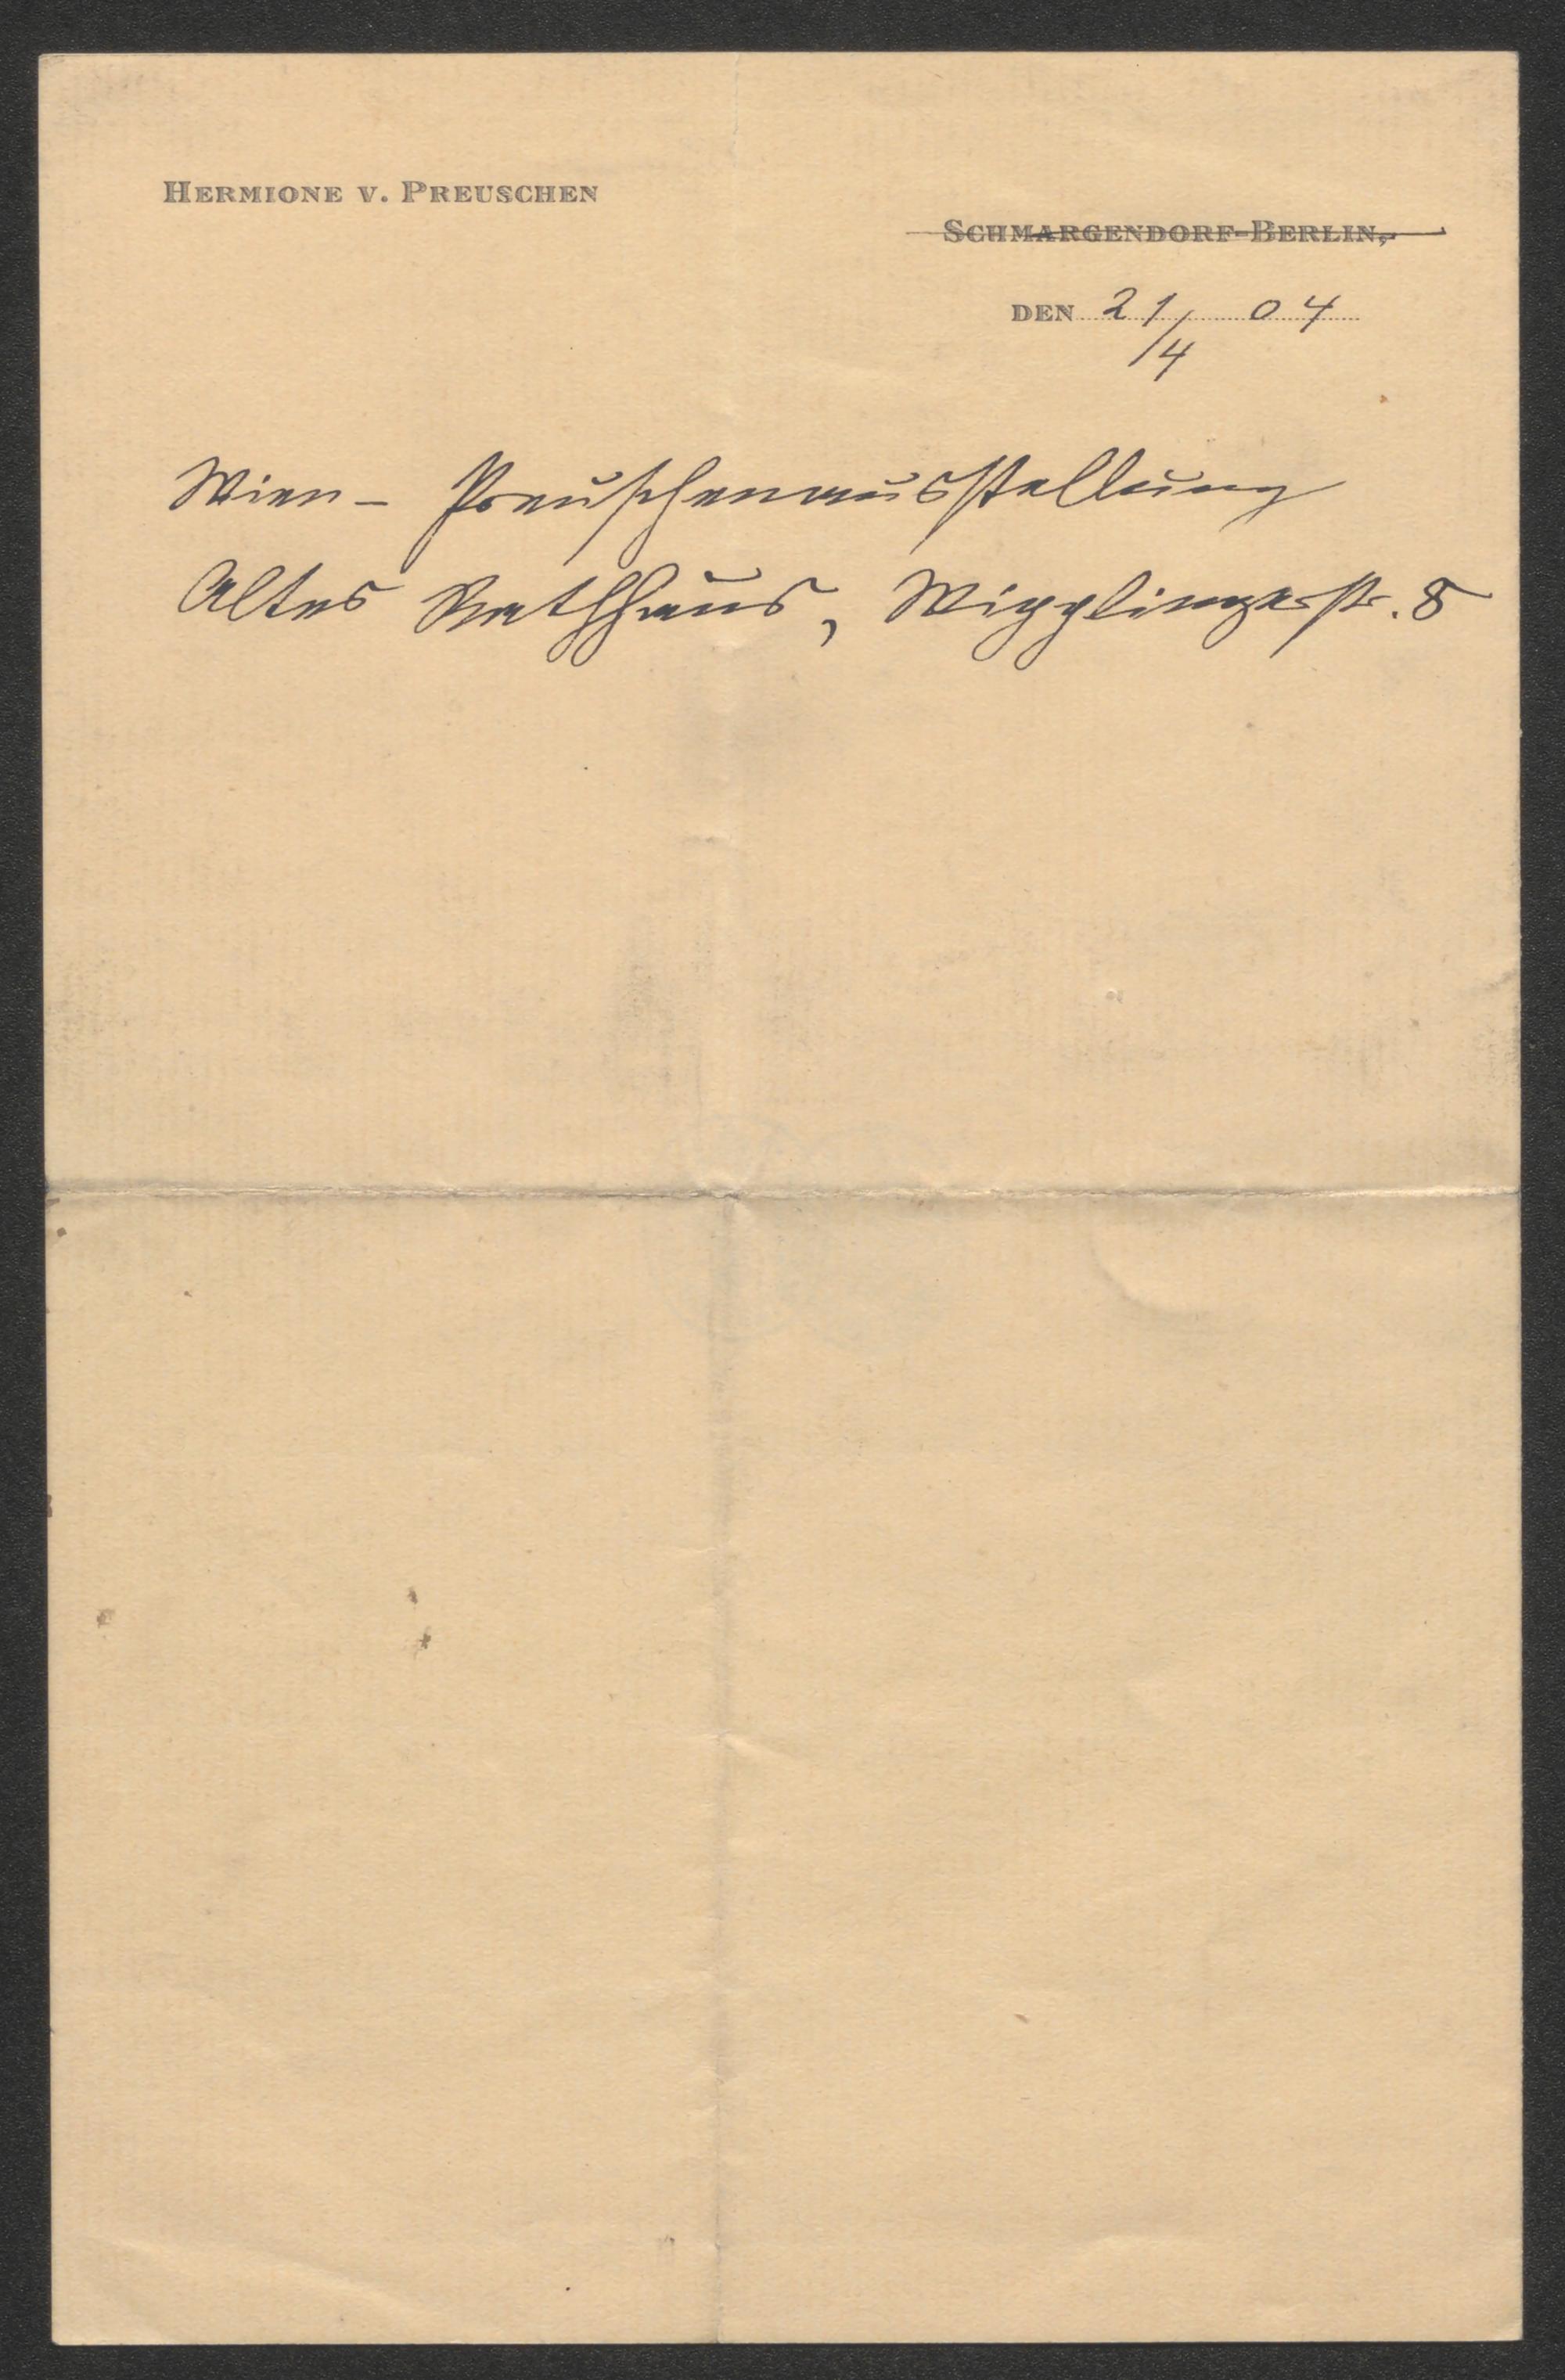 HERMIONE V. PREUSCHEN
SCHMARGENDORF-BERLIN,
DEN 21/4 04
Wien - Preuschenausstellung
Altes Rathhaus, Wipplingerstr. 8